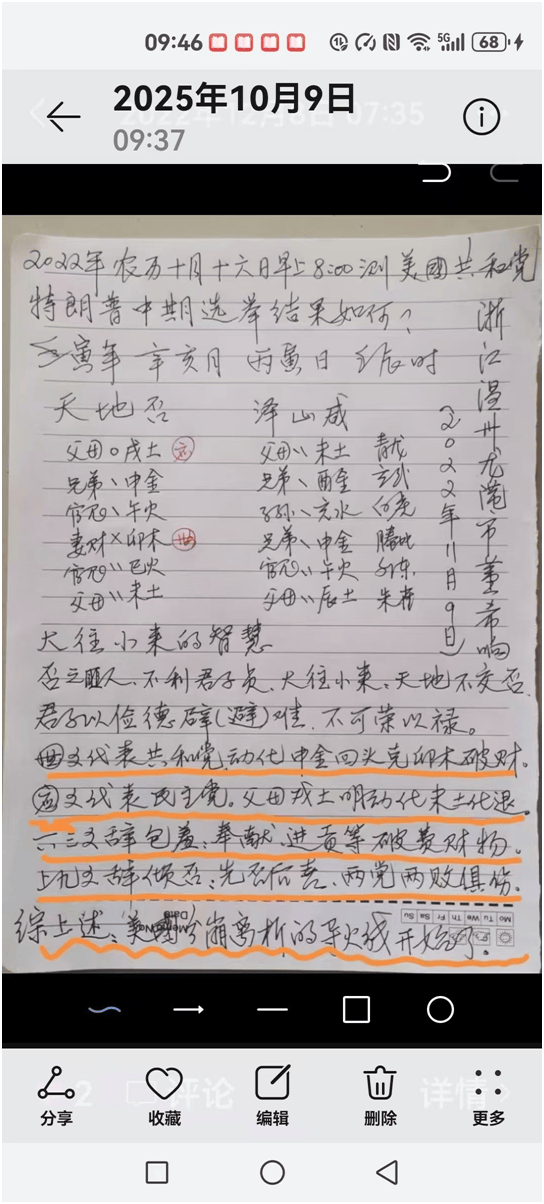 09:46 5G 68
2025年10月9日
09:37
2022年农历十月十六日早上8:00测美國共和党
特朗普中期选举结果如何?
壬寅年 辛亥月 丙寅日 壬辰时
天地否 泽山咸
父母〇戌土 应 父母〃未土 青龙
兄弟、申金 兄弟、酉金 玄武
官鬼、午火 子孙、亥水 白虎
妻财×卯木 世 兄弟、申金 腾蛇
官鬼〃巳火 官鬼〃午火 勾陈
父母〃未土 父母〃辰土 朱雀
浙江温州龙港市董希响
2022年11月9日
大往小来的智慧
否之匪人,不利君子贞,大往小来。天地不交否
君子以俭德辟(避)难,不可荣以禄。
世爻代表共和党,动化申金回头克卯木破财。
应爻代表民主党。父母戌土明动化未土化退。
六三爻辞包羞:奉献、进贡等破费财物。
上九爻辞倾否:先否后喜,两党两败俱伤。
综上述:美國分崩离析的导火线开始了。
Mo Tu We Th Fr Sa Su
Date
分享 收藏 编辑 删除 更多